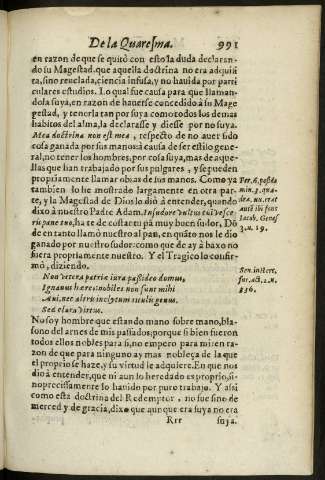 De la Quaresma. 991
en razon de que se quitò con esto la duda declaran-
do su Magestad, que aquella doctrina no era adquiri
ta, sino reuelada, ciencia infusa, y no hauida por parti
culares estudios. Lo qual fue causa para que llaman-
dola suya, en razon de hauerse concedido à su Mage
gestad, y tenerla tan por suya como todos los demas
habitos del alma, la declarasse y diesse por no suya.
Mea doctrina non est mea, respecto de no auer sido
cosa ganada por sus manos: à causa de ser estilo gene-
ral, no tener los hombres, por cosa suya, mas de aque-
llas que han trabajado por sus pulgares, y se pueden
propriamente llamar obras de sus manos. Como ya
tambien lo he mostrado largamente en otra par-
te, y la Magestad de Dios lo diò à entender, quando
dixo à nuestro Padre Adam. In sudore vultus tui vesce-
ris pane tuo, ha te de costar tu pã muy buen sudor, Dõ
de en tanto llamò nuestro al pan, en quãto nos le dio
ganado por nuestro sudor: como que de ay à baxo no
fuera propriamente nuestro. Y el Tragico lo confir-
mò, diziendo.
Non vetera patria iura possideo domus,
Ignarus hæres: nobiles non sunt mihi
Aui, nec altis inclytum titulis genus.
Sed clara virtus.
No soy hombre que estando mano sobre mano, bla-
sone del arnes de mis passados: porque si bien fueron
todos ellos nobles para si, no empero para mi en ra-
zon de que para ninguno ay mas nobleça de la que
el proprio se haze, y su virtud le adquiere. En que nos
dio à entender, que ni aun lo heredado es proprio, si-
no precissamente lo hauido por puro trabajo. Y assi
como esta doctrina del Redemptor, no fue sino de
merced y de gracia, dixo que aunque era suya no era
Rrr suya.
min. 3. qua-
3. n. 19.
836.